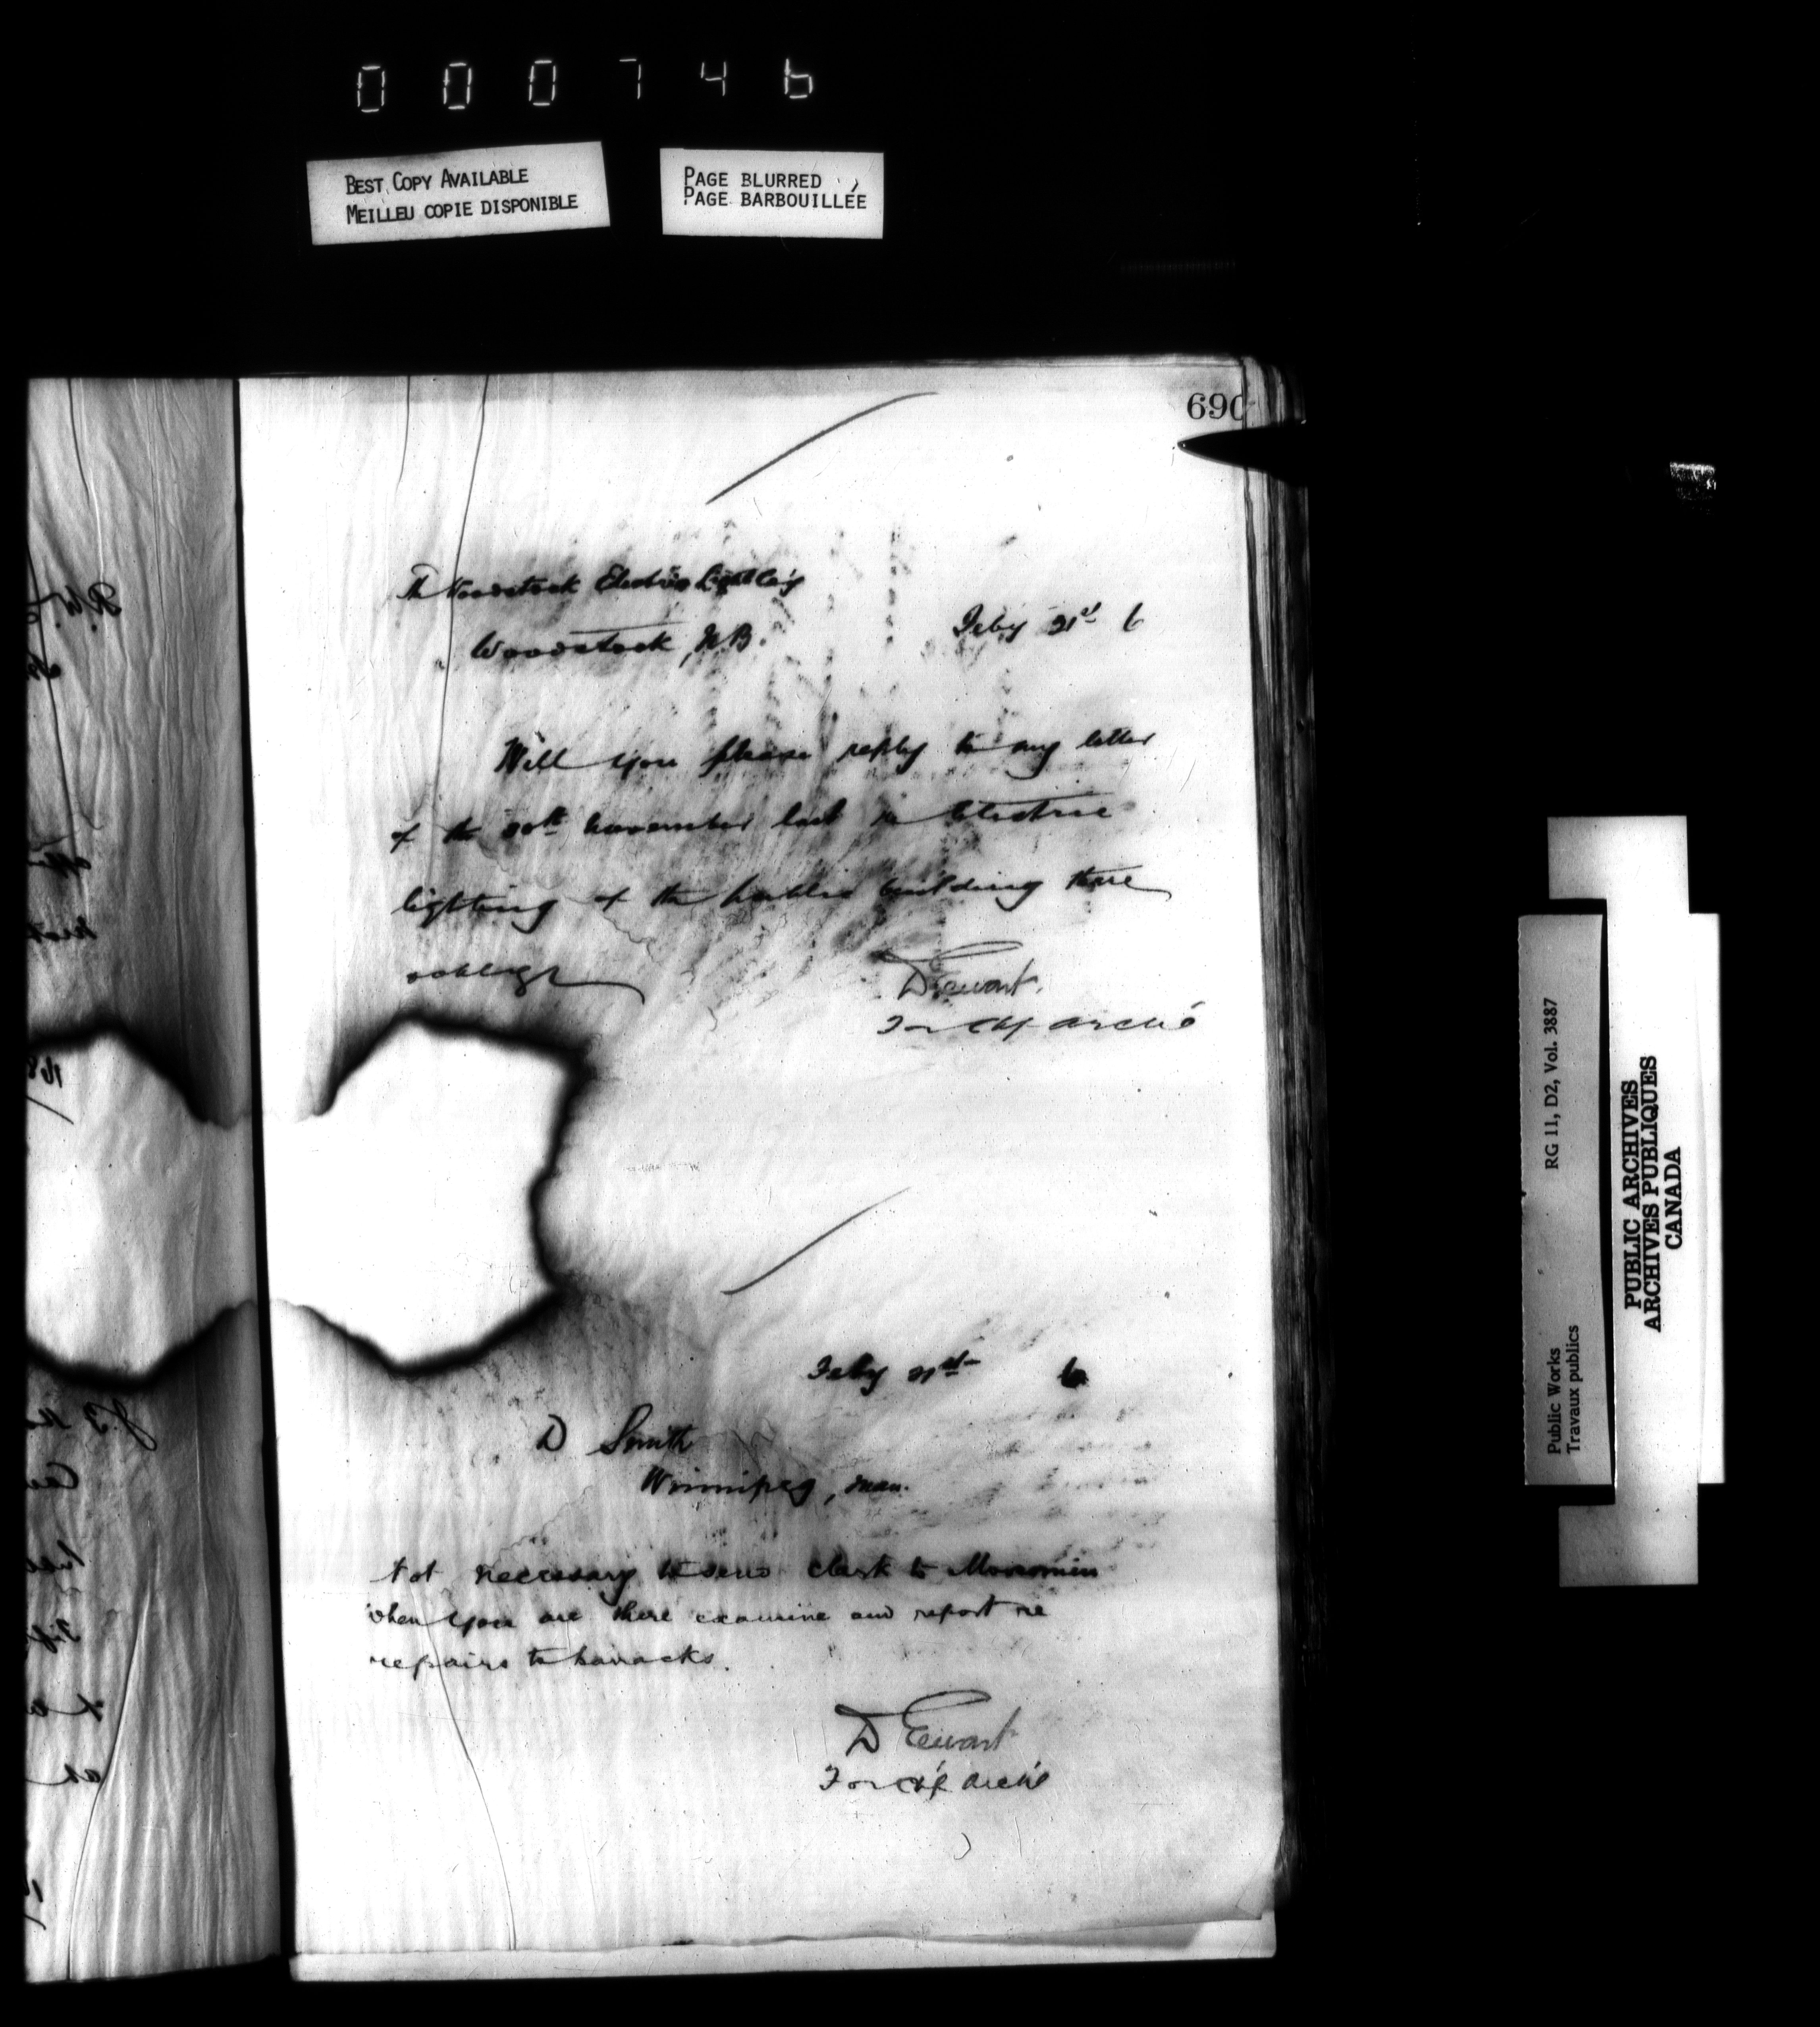 000746
BEST COPY AVAILABLE
MEILLEU COPIE DISPONIBLE
PAGE BLURRED
PAGE BARBOUILLÉE
690
The Woodstock Electric Light Co'y
Woodstock, N.B.
Feby 21st 6
Will you please reply to my letter
of the 20th November last re Electric
lighting of the public building there
oblige
D Ewart.
For Chf Arch't
Feby 21st 6
D Smith
Winnipeg, Man.
Not necessary to send clerk to Moosomin
when you are there examine and report re
repairs to barracks.
D Ewart
For Chf Arch't
Public Works
Travaux publics
RG 11, D2, Vol. 3887
PUBLIC ARCHIVES
ARCHIVES PUBLIQUES
CANADA